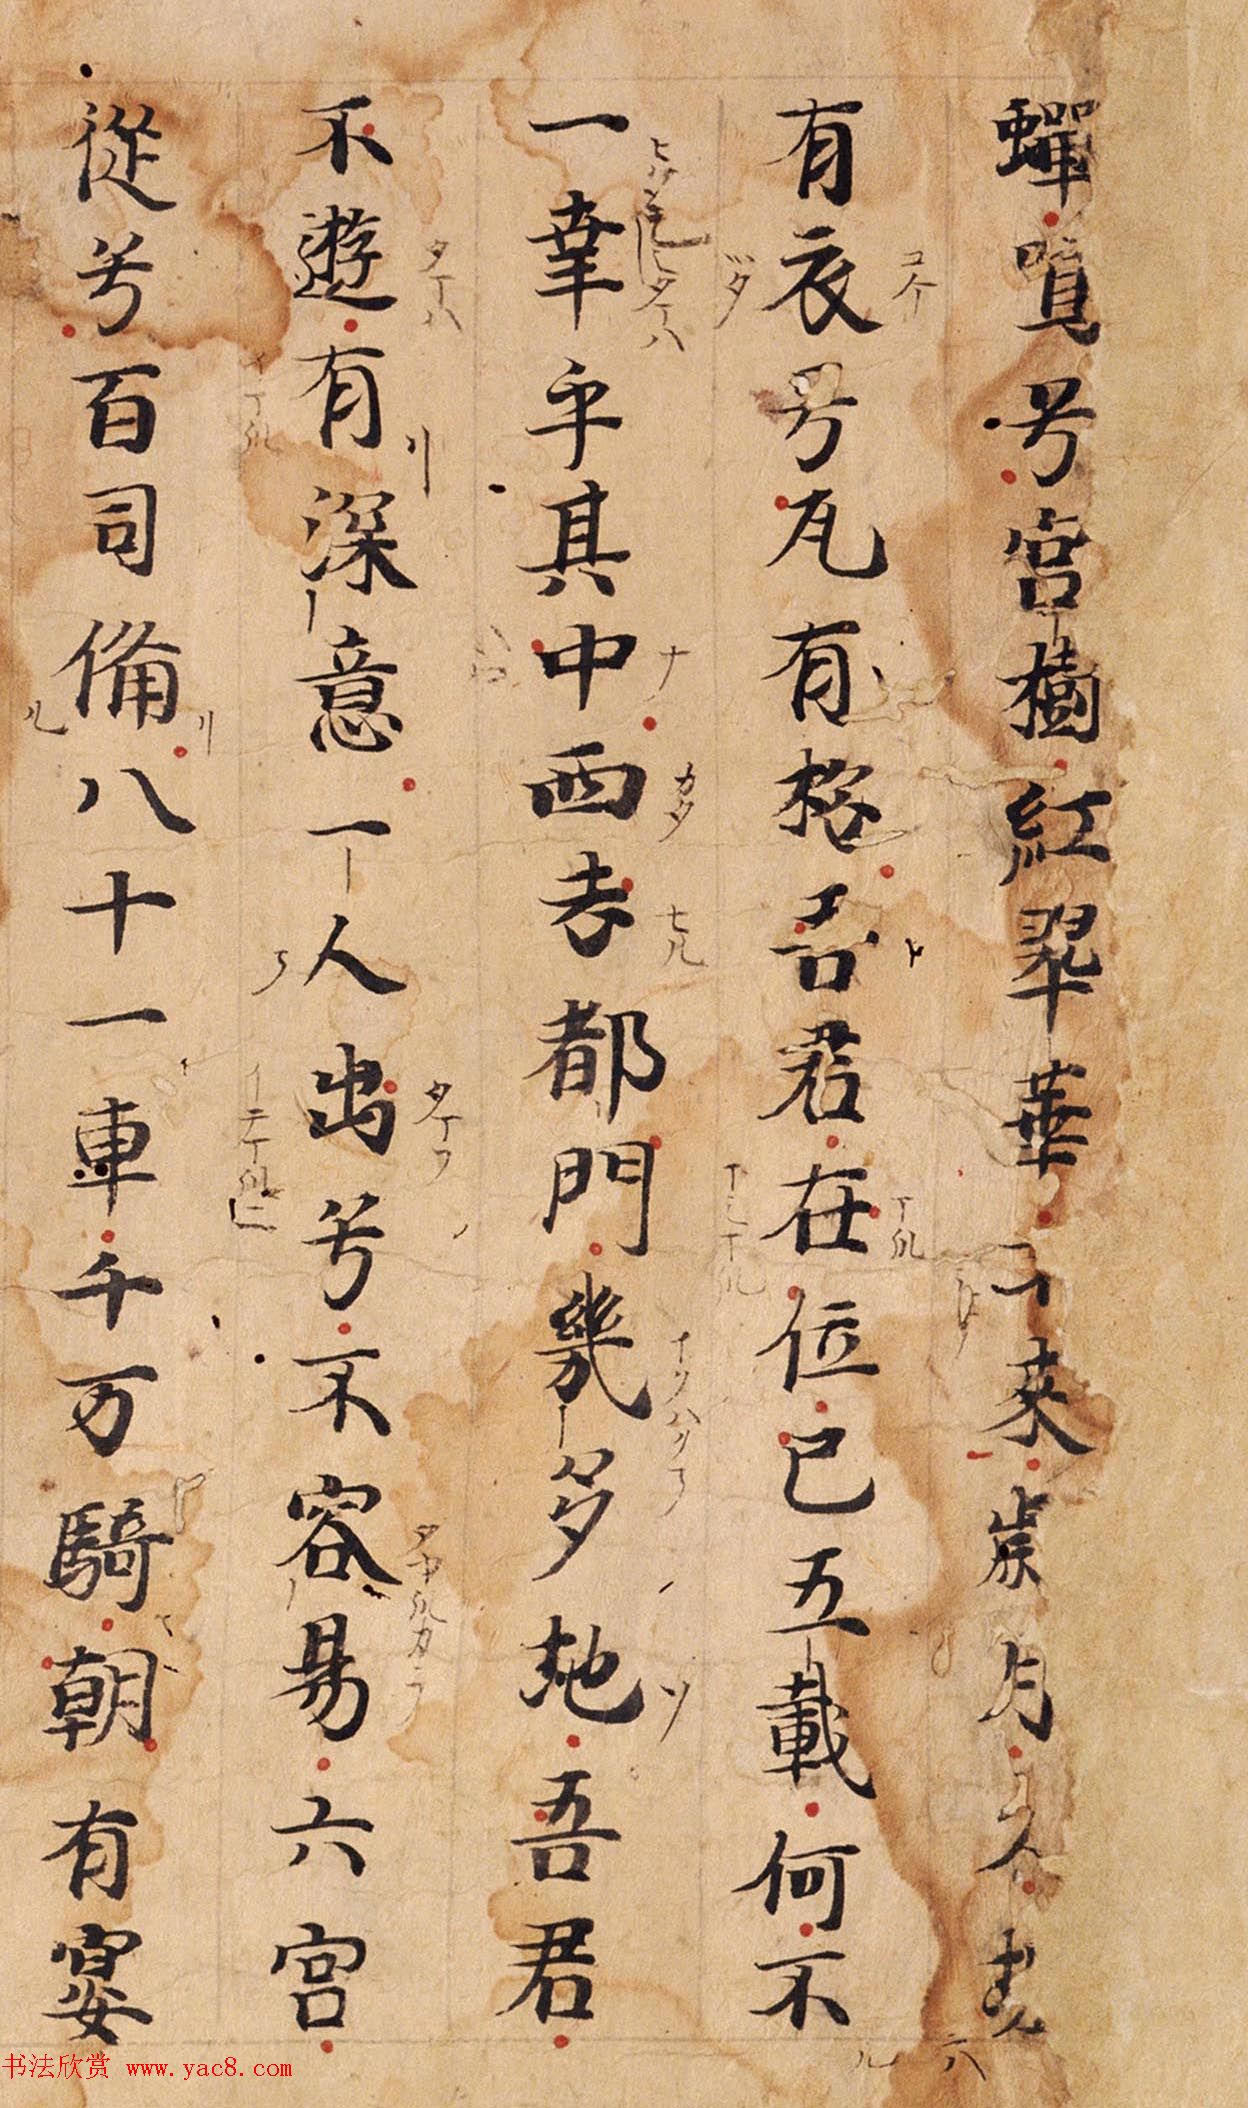 蟬兮宮樹紅翠華不來歲月久
有衣兮瓦有松吾君在位已五載何不
一幸乎其中西去都門幾多地吾君
不遊有深意一人出兮不容易六宮
從兮百司備八十一車千万騎朝有宴
书法欣赏 www.yac8.com